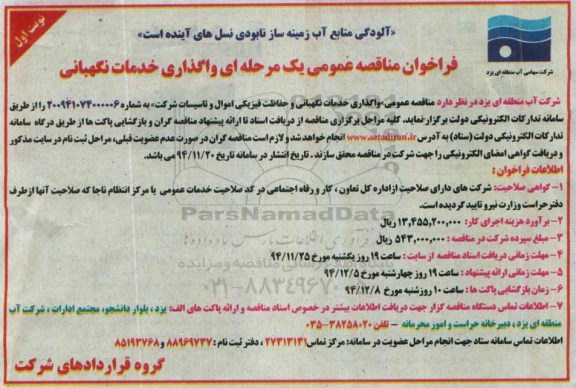 نوبت اول
«آلودگی منابع آب زمینه ساز نابودی نسل های آینده است»
شرکت سهامی آب منطقه ای یزد
فراخوان مناقصه عمومی یک مرحله ای واگذاری خدمات نگهبانی
شرکت آب منطقه ای یزد در نظر دارد مناقصه عمومی «واگذاری خدمات نگهبانی و حفاظت فیزیکی اموال و تاسیسات شرکت» به شماره ۲۰۰۹۴۱۰۷۴۰۰۰۰۰۶ را از طریق
سامانه تدارکات الکترونیکی دولت برگزار نماید. کلیه مراحل برگزاری مناقصه از دریافت اسناد تا ارائه پیشنهاد مناقصه گران و بازگشایی پاکت ها از طریق درگاه سامانه
تدارکات الکترونیکی دولت (ستاد) به آدرس www.setadiran.ir انجام خواهد شد و لازم است مناقصه گران در صورت عدم عضویت قبلی، مراحل ثبت نام در سایت مذکور
و دریافت گواهی امضای الکترونیکی را جهت شرکت در مناقصه محقق سازند. تاریخ انتشار در سامانه تاریخ ۹۴/۱۱/۲۰ می باشد.
اطلاعات فراخوان:
۱- گواهی صلاحیت: شرکت های دارای صلاحیت از اداره کل تعاون، کار و رفاه اجتماعی در کد صلاحیت خدمات عمومی یا مرکز انتظام ناجا که صلاحیت آنها از طرف
دفتر حراست وزارت نیرو تایید گردیده است.
۲- برآورد هزینه اجرای کار: ۱۳,۴۵۵,۲۰۰,۰۰۰ ریال
۳- مبلغ سپرده شرکت در مناقصه: ۵۴۳,۰۰۰,۰۰۰ ریال
۴- مهلت زمانی دریافت اسناد مناقصه از سایت: ساعت ۱۹ روز یکشنبه مورخ ۹۴/۱۱/۲۵
۵- مهلت زمانی ارائه پیشنهاد: ساعت ۱۹ روز چهارشنبه مورخ ۹۴/۱۲/۵
۶- زمان بازگشایی پاکت ها: ساعت ۱۰ روز شنبه مورخ ۹۴/۱۲/۸
۷- اطلاعات تماس دستگاه مناقصه گزار جهت دریافت اطلاعات بیشتر در خصوص اسناد مناقصه و ارائه پاکت های الف: یزد، بلوار دانشجو، مجتمع ادارات، شرکت آب
منطقه ای یزد، دبیرخانه حراست و امور محرمانه - تلفن ۳۸۲۵۸۰۲۰-۰۳۵
اطلاعات تماس سامانه ستاد جهت انجام مراحل عضویت در سامانه: مرکز تماس ۲۷۳۱۳۱۳۱، دفتر ثبت نام: ۸۸۹۶۹۷۳۷ و ۸۵۱۹۳۷۶۸
گروه قراردادهای شرکت
ParsNamadData
۰۲۱-۸۸۳۴۹۶۷۰